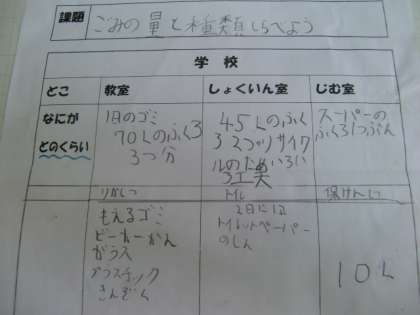 課題 ごみの量と種類しらべよう
学校
とこ 教室 しょくいん室 じむ室
なにが
どのくらい
1日のゴミ
70Lのふくろ
3つ分
45Lのふく
ろ3つッサイク
ルのため
スーパーの
ふくろ1つぶん
りかしつ 保けんしつ
もえるゴミ
ビーカーかん
ガラス
プラスチック
きんぞく
2日に1コ
トイレットペーパー
のしん
10L